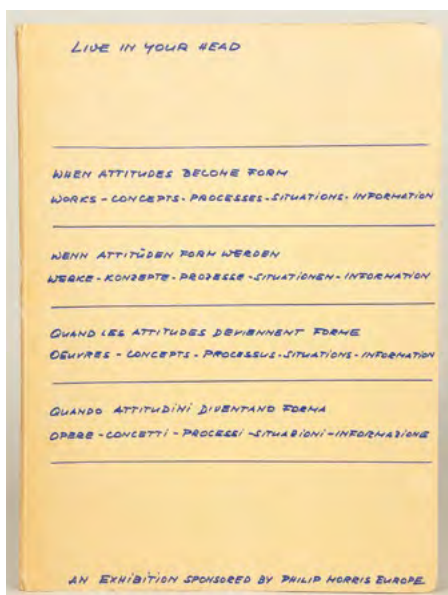 LIVE IN YOUR HEAD
WHEN ATTITUDES BECOME FORM
WORKS – CONCEPTS – PROCESSES – SITUATIONS – INFORMATION
WENN ATTITÜDEN FORM WERDEN
WERKE – KONZEPTE – PROZESSE – SITUATIONEN – INFORMATION
QUAND LES ATTITUDES DEVIENNENT FORME
OEUVRES – CONCEPTS – PROCESSUS – SITUATIONS – INFORMATION
QUANDO ATTITUDINI DIVENTANO FORMA
OPERE – CONCETTI – PROCESSI – SITUAZIONI – INFORMAZIONE
AN EXHIBITION SPONSORED BY PHILIP MORRIS EUROPE